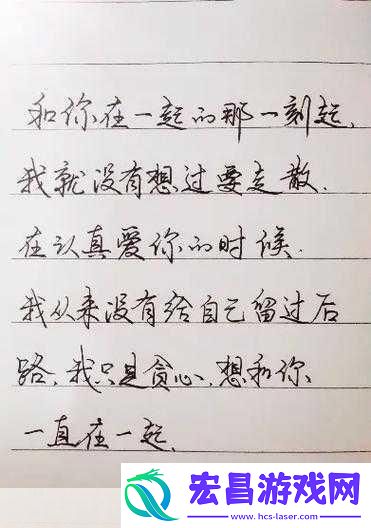 和你在一起的那一刻起,
我就没有想过要走散.
在认真爱你的时候.
我从来没有给自己留过后
路,我只是贪心,想和你
一直在一起,
宏昌游戏网
www.hcs-laser.com